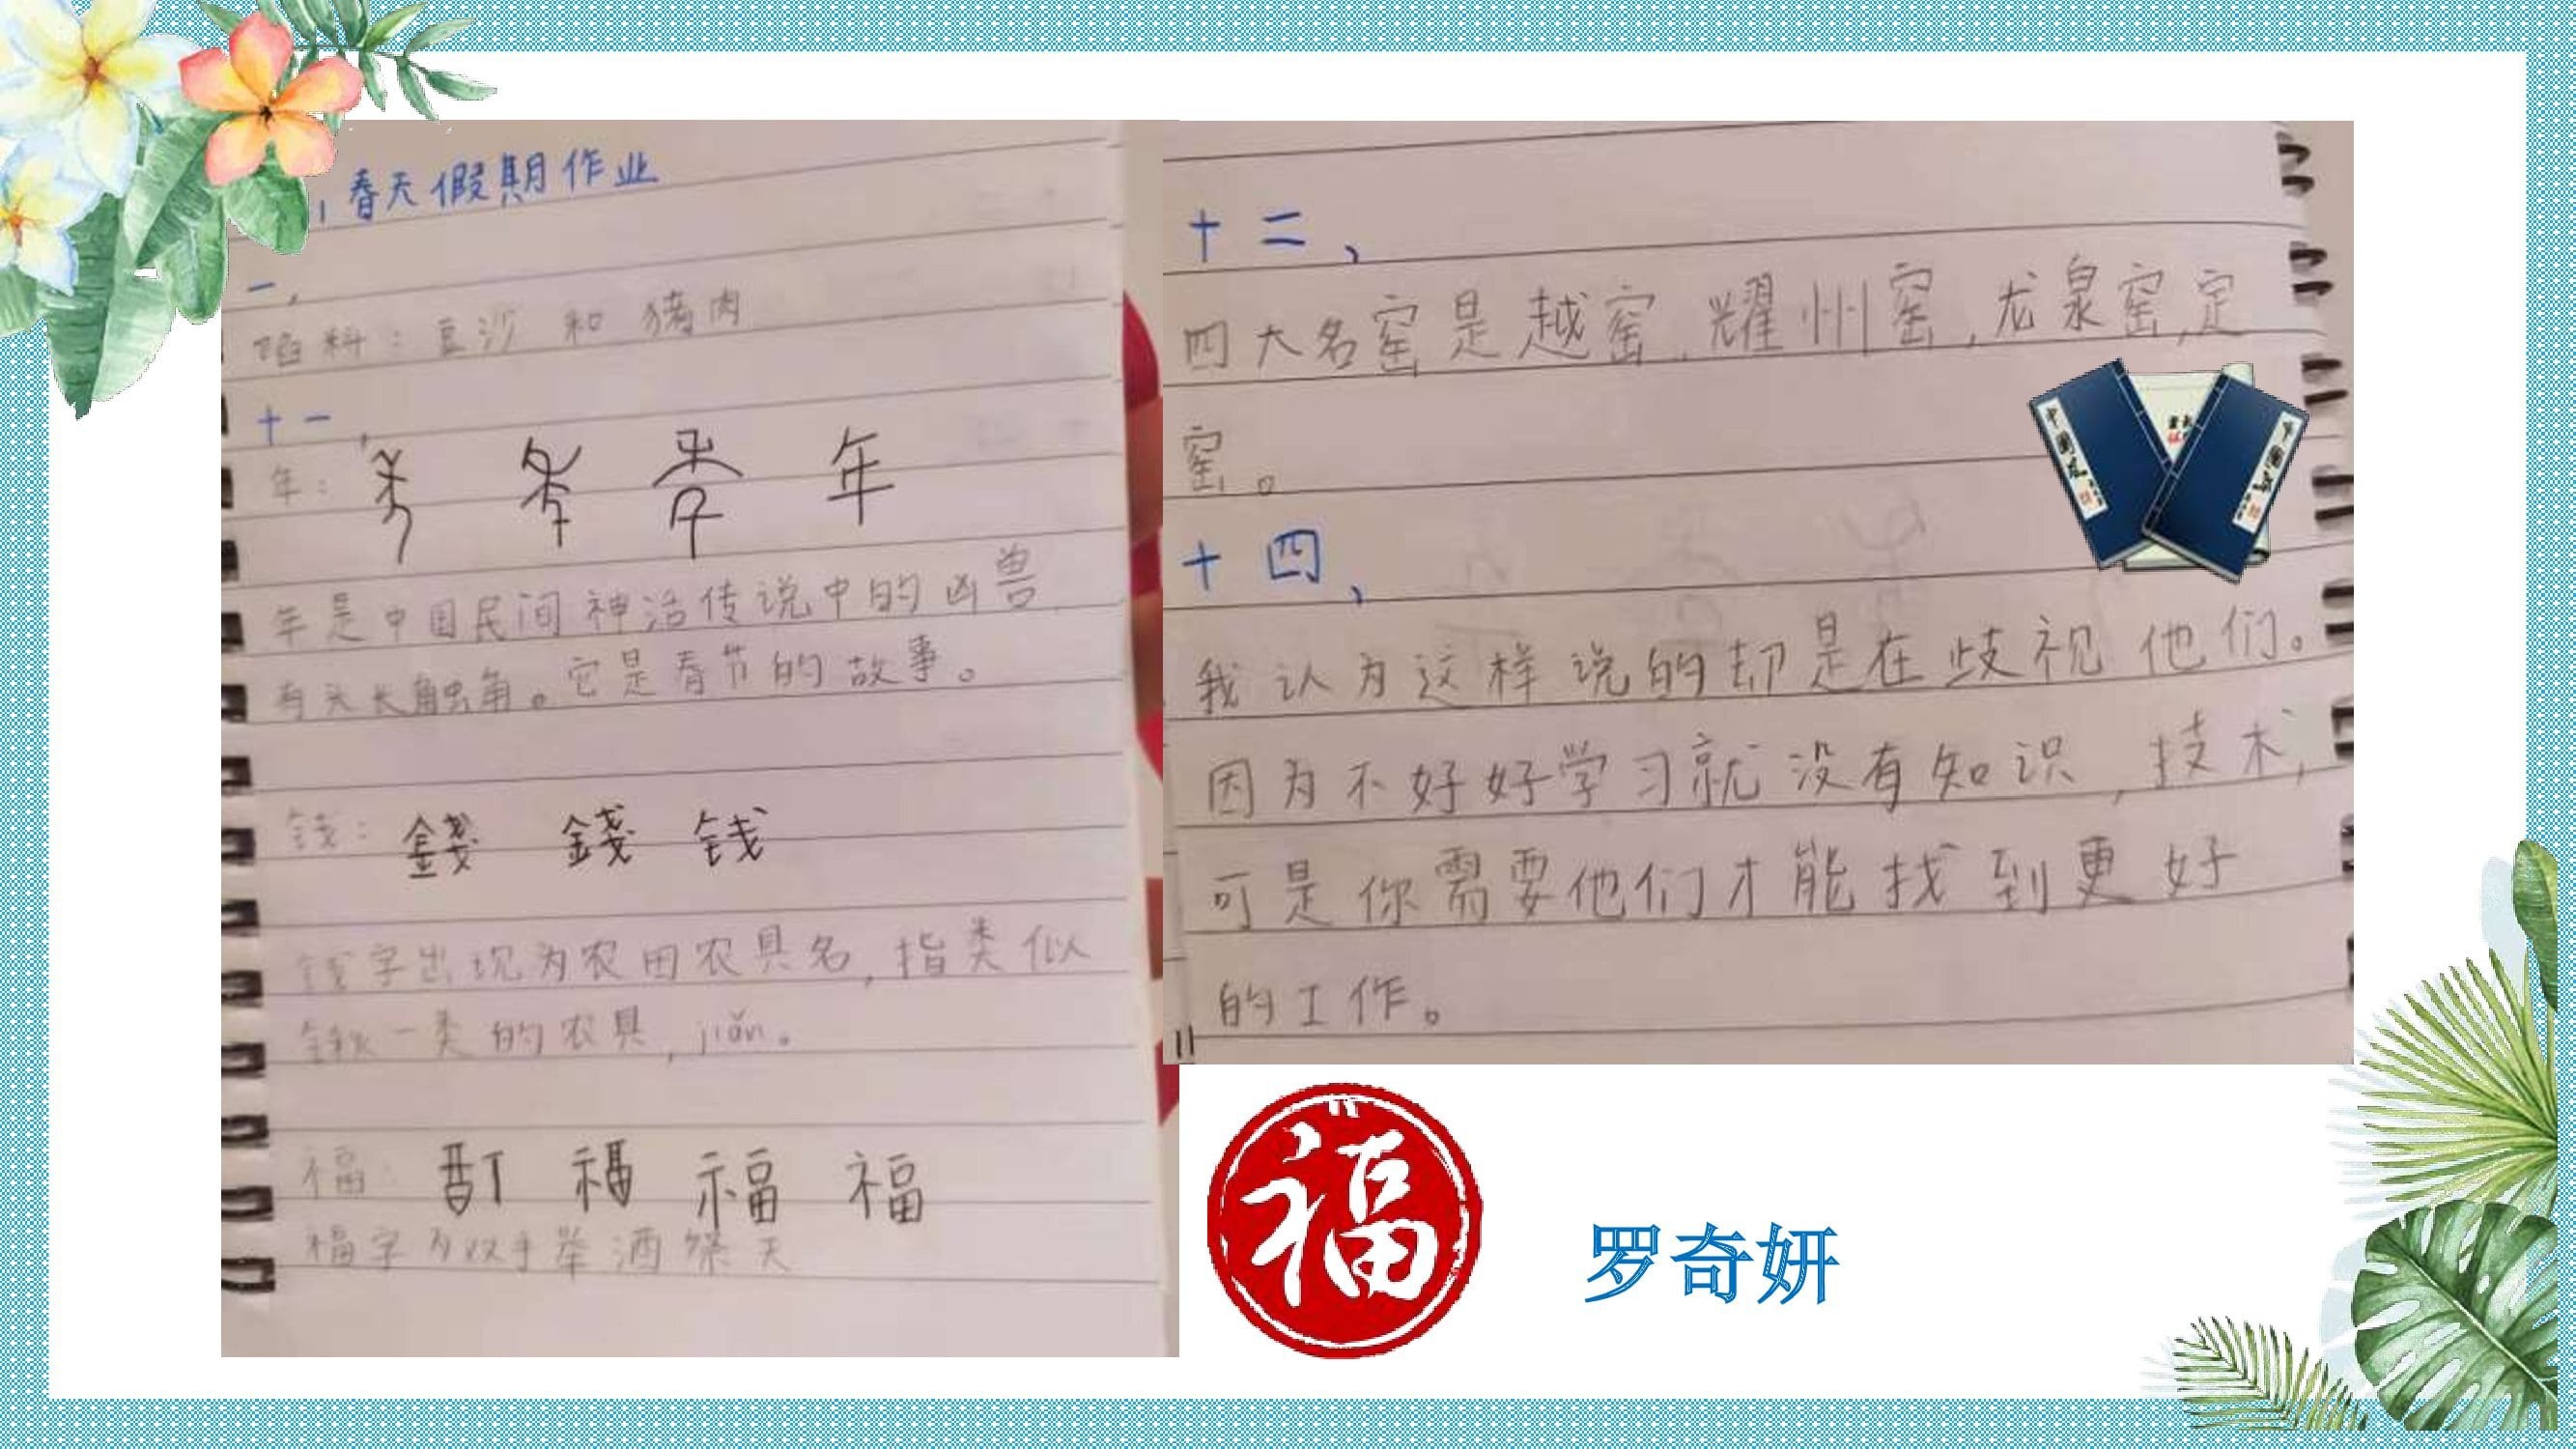 春天假期作业
一,
馅料：豆沙 和 猪肉
十一,
年： 年
年是中国民间神治传说中的凶兽,
有头长触角。它是春节的故事。
钱： 錢 錢 钱
钱字出现为农田农具名,指类似
锹一类的农具,jiǎn。
福： 福 福
福字为双手举酒祭天
十二、
四大名窑是越窑,耀州窑,龙泉窑,定
窑。
十四、
我认为这样说的却是在歧视他们。
因为不好好学习就没有知识,技术,
可是你需要他们才能找到更好
的工作。
福
罗奇妍